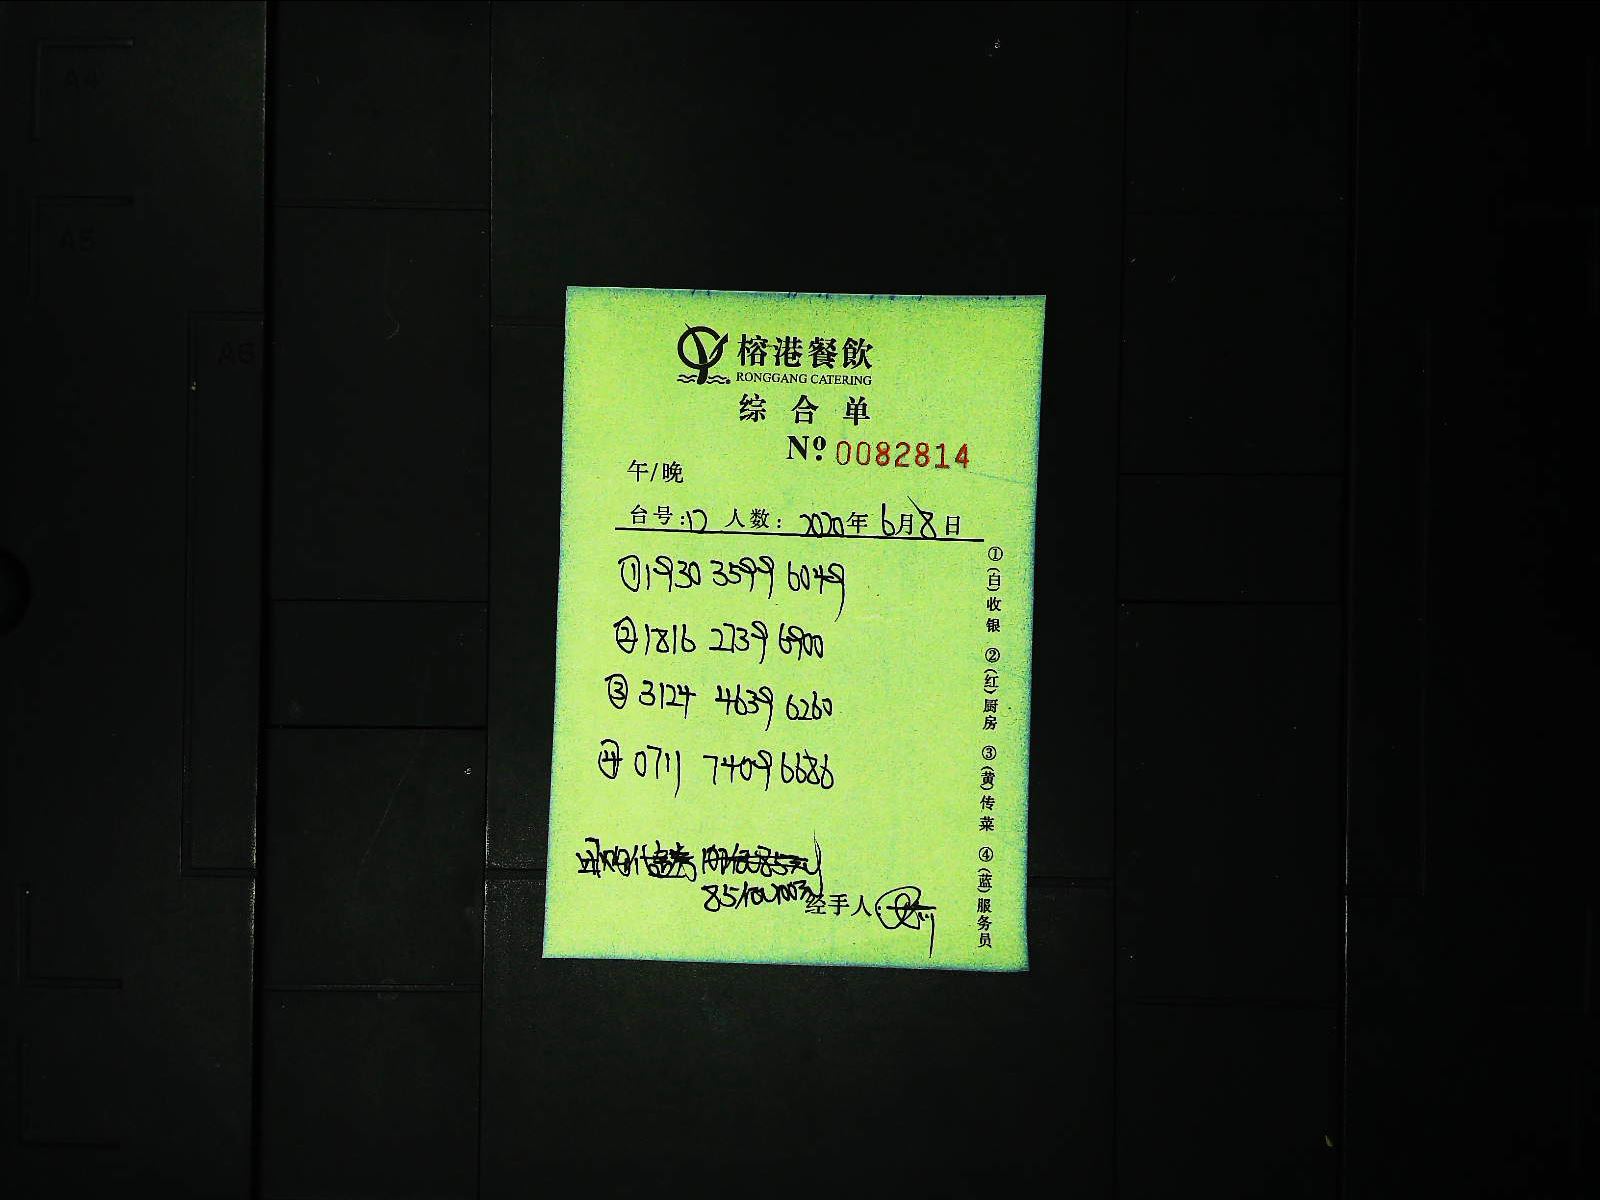 A4
A5
A6
榕港餐飲
RONGGANG CATERING
综合单
Nº 0082814
午/晚
台号:12 人数: 2020年6月8日
①1930 3599 6049
②1816 2739 6900
③3124 4639 6260
④0711 7409 6686
经手人:
①(白)收银 ②(红)厨房 ③(黄)传菜 ④(蓝)服务员